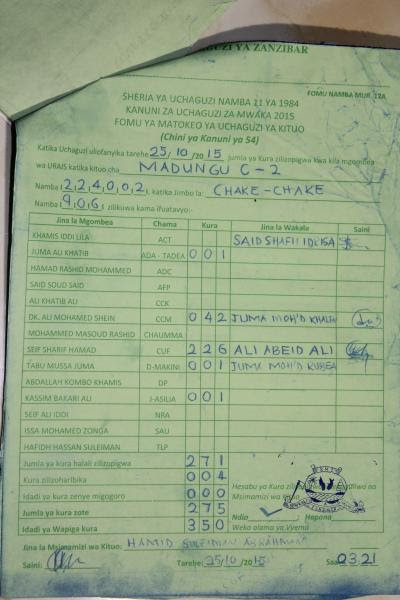 UCHAGUZI YA ZANZIBAR
FOMU NAMBA MUR. 12A
SHERIA YA UCHAGUZI NAMBA 11 YA 1984
KANUNI ZA UCHAGUZI ZA MWAKA 2015
FOMU YA MATOKEO YA UCHAGUZI YA KITUO
(Chini ya Kanuni ya 54)
Katika Uchaguzi uliofanyika tarehe 25/10/2015 jumla ya Kura zilizopigwa kwa kila mgombea
wa URAIS katika kituo cha MADUNGU C-2
Namba (2,2,4,0,0,2), katika Jimbo la: CHAKE-CHAKE
Namba (9,0,6), zilikuwa kama ifuatavyo:-
Jina la Mgombea Chama Kura Jina la Wakala Saini
KHAMIS IDDI LILA ACT SAID SHAFII IDRISA
JUMA ALI KHATIB ADA - TADEA 001
HAMAD RASHID MOHAMMED ADC
SAID SOUD SAID AFP
ALI KHATIB ALI CCK
DK. ALI MOHAMED SHEIN CCM 042 JUMA MOH'D KHALFA
MOHAMMED MASOUD RASHID CHAUMMA
SEIF SHARIF HAMAD CUF 226 ALI ABEID ALI
TABU MUSSA JUMA D-MAKINI 001 JUMA MOH'D
ABDALLAH KOMBO KHAMIS DP
KASSIM BAKARI ALI J-ASILIA 001
SEIF ALI IDDI NRA
ISSA MOHAMED ZONGA SAU
HAFIDH HASSAN SULEIMAN TLP
Jumla ya kura halali zilizopigwa 271
Kura zilizoharibika 004 Hesabu ya Kura na
Idadi ya kura zenye migogoro 000 Msimamizi wa
Jumla ya kura zote 275 Ndio Hapana
Idadi ya Wapiga kura 350 Weka alama ya Vyema
Jina la Msimamizi wa Kituo: HAMID SULEIMAN
Saini: Tarehe: 25/10/2015 Saa 03.21